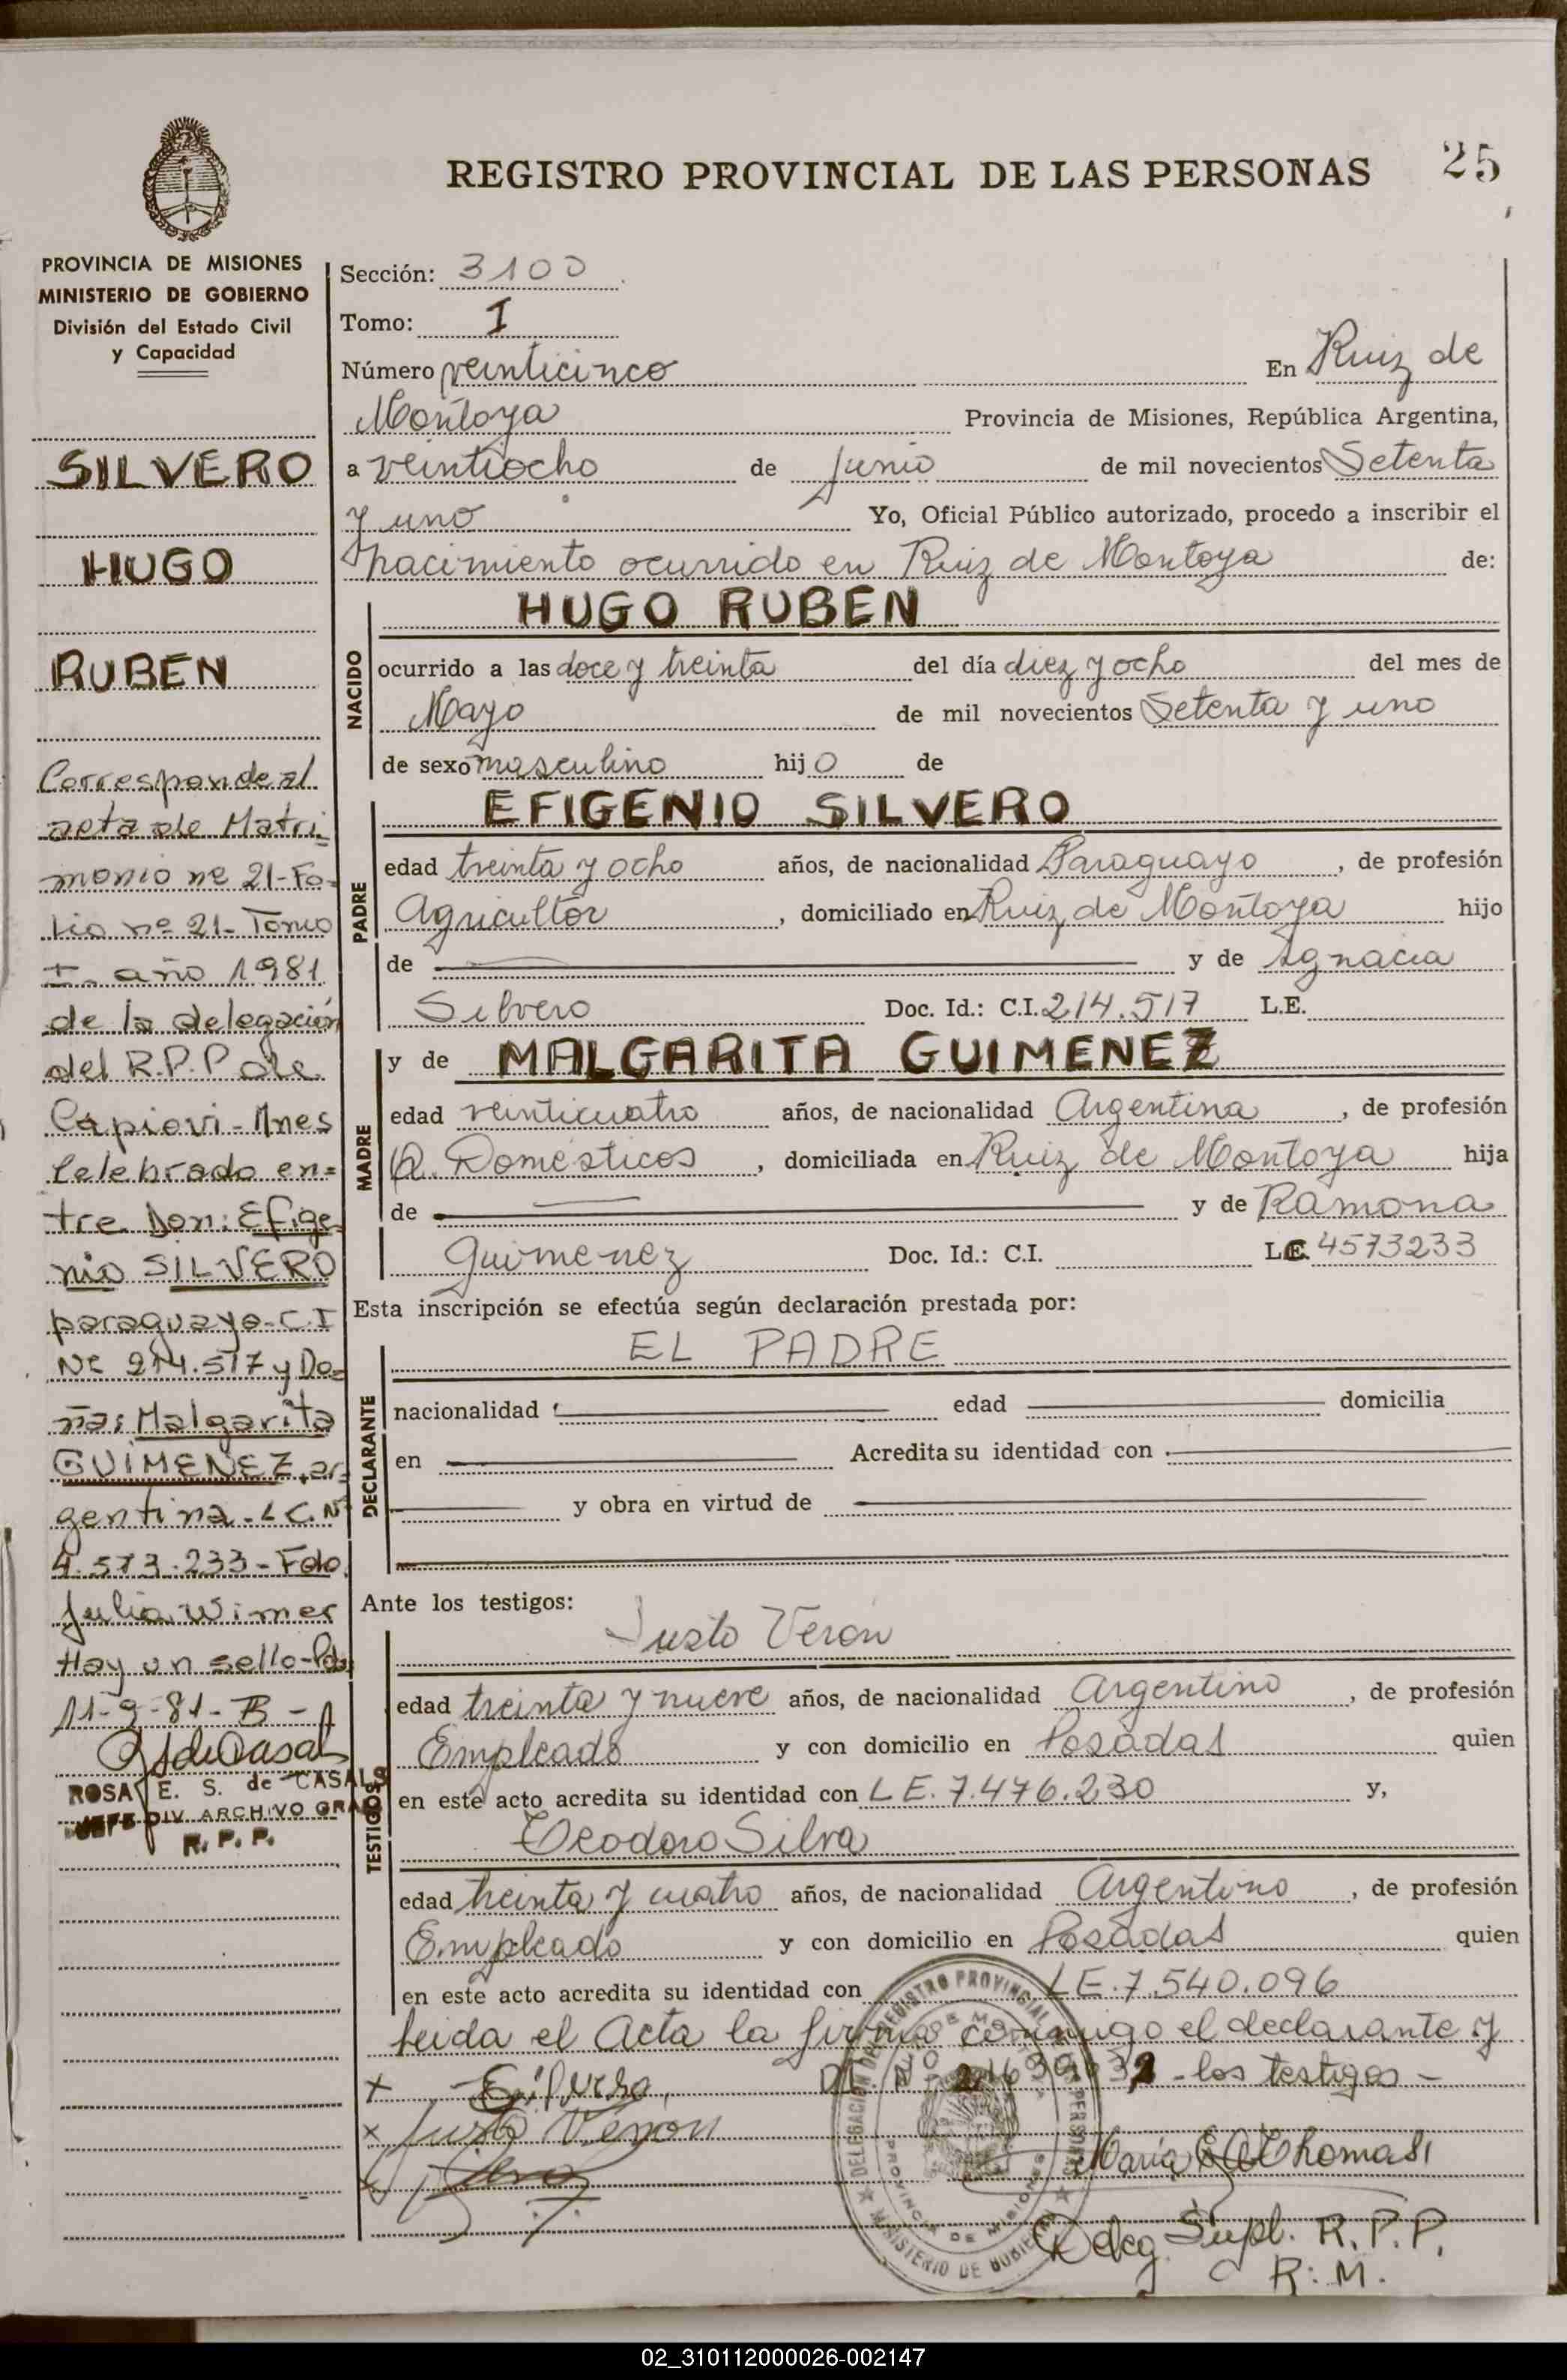 REGISTRO PROVINCIAL DE LAS PERSONAS 25
PROVINCIA DE MISIONES
MINISTERIO DE GOBIERNO
División del Estado Civil
y Capacidad
SILVERO
HUGO
RUBEN
Corresponde al
acta de Matri-
monio nº 21-Fo-
lio nº 21-Tomo
I- año 1981
de la delegación
del R.P.P de
Capiovi-Mnes
Celebrado en=
tre Don: Efige-
nio SILVERO
paraguayo-C.I
Nº 214.517 y Do=
ña: Malgarita
GUIMENEZ, ar-
gentina-L.C.Nº
4.573.233-Fdo.
Julia Wimer
Hay un sello-Pdas
11-9-81-B-
ROSA E. S. de CASALS
JEFE DIV. ARCHIVO GRAL
R. P. P.
Sección: 3100
Tomo: I
Número veinticinco En Ruiz de
Montoya Provincia de Misiones, República Argentina,
a veintiocho de Junio de mil novecientos Setenta
y uno Yo, Oficial Público autorizado, procedo a inscribir el
nacimiento ocurrido en Ruiz de Montoya de:
NACIDO
HUGO RUBEN
ocurrido a las doce y treinta del día diez y ocho del mes de
Mayo de mil novecientos Setenta y uno
de sexo masculino hijo de
PADRE
EFIGENIO SILVERO
edad treinta y ocho años, de nacionalidad Paraguayo, de profesión
Agricultor, domiciliado en Ruiz de Montoya hijo
de y de Ignacia
Silvero Doc. Id.: C.I. 214.517 L.E.
MADRE
y de MALGARITA GUIMENEZ
edad veinticuatro años, de nacionalidad Argentina, de profesión
Q. Domésticos, domiciliada en Ruiz de Montoya hija
de y de Ramona
Guimenez Doc. Id.: C.I. LC. 4573233
Esta inscripción se efectúa según declaración prestada por:
DECLARANTE
EL PADRE
nacionalidad edad domicilia
en Acredita su identidad con
y obra en virtud de
Ante los testigos:
TESTIGOS
Justo Veron
edad treinta y nueve años, de nacionalidad Argentino, de profesión
Empleado y con domicilio en Posadas quien
en este acto acredita su identidad con L E. 7.476.230 y,
Teodoro Silva
edad treinta y cuatro años, de nacionalidad Argentino, de profesión
Empleado y con domicilio en Posadas quien
en este acto acredita su identidad con LE. 7.540.096
leida el Acta la firma conmigo el declarante y
los testigos-
Justo Veron
Deleg Supl. R.P.P.
R.M.
DELEGACION DEL REGISTRO PROVINCIAL DE LAS PERSONAS
PROVINCIA DE MISIONES
MINISTERIO DE GOBIERNO
02_310112000026-002147